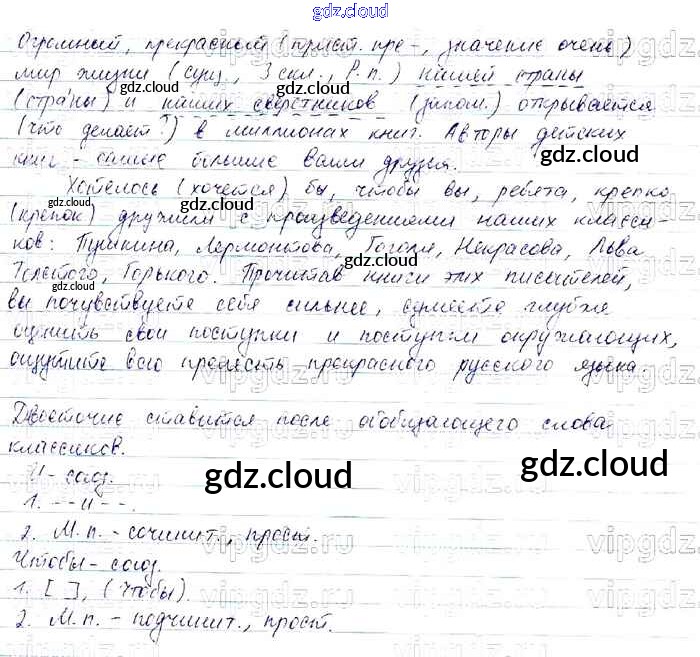 gdz.cloud
Огромный, прекрасный (прист. пре-, значение очень)
мир жизни (сущ., 3 скл., Р.п.) нашей страны
(стра́ны) и наших сверстников (запом.) открывается
(что делает?) в миллионах книг. Авторы детских
книг - самые большие ваши друзья.
Хотелось (хочется) бы, чтобы вы, ребята, крепко
(крепок) дружили с произведениями наших класси-
ков: Пушкина, Лермонтова, Гоголя, Некрасова, Льва
Толстого, Горького. Прочитав книги этих писателей,
вы почувствуете себя сильнее, сумеете глубже
оценить свои поступки и поступки окружающих,
ощутите всю прелесть прекрасного русского языка.
Двоеточие ставится после обобщающего слова
классиков.
И - союз.
1. -- и --.
2. М.п. - сочинит., прост.
Чтобы - союз.
1. [ ], (чтобы).
2. М.п. - подчинит., прост.